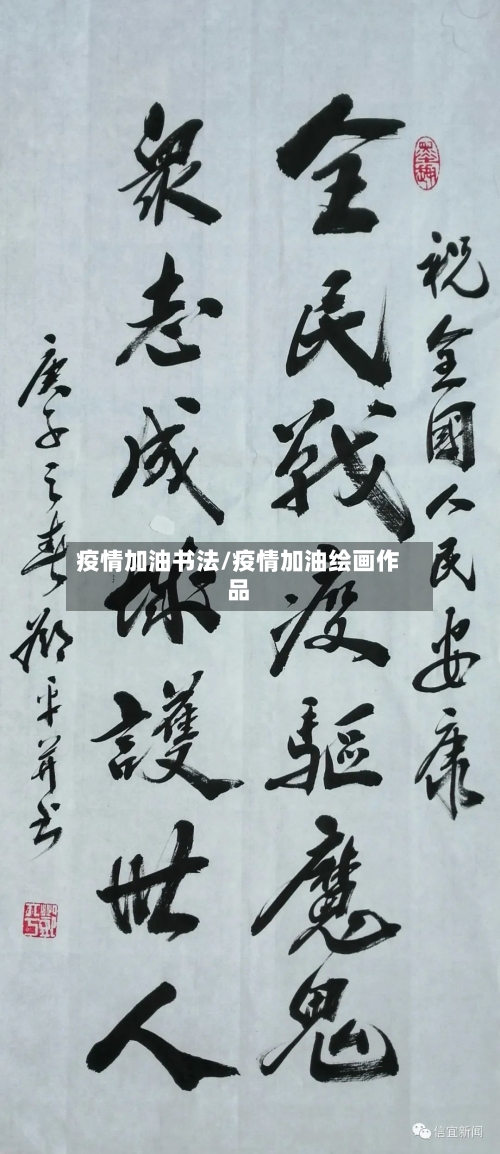 祝全國人民安康
全民戰疫驅魔鬼
衆志成城護世人
庚子之春鄧平并书
疫情加油书法/疫情加油绘画作
品
信宜新闻